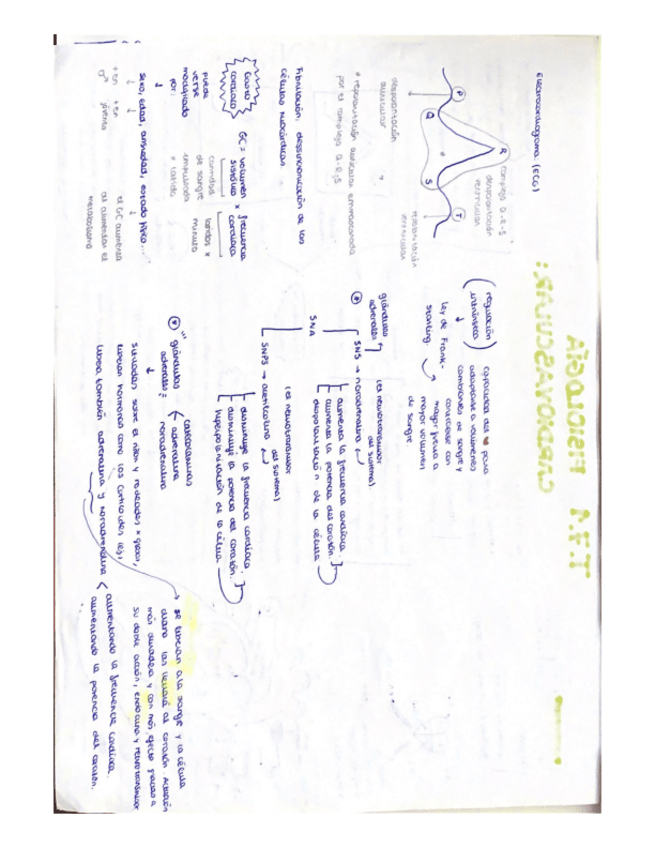 FISIOLOGÍA
CARDIOVASCULAR:
Electrocardiograma. (ECG)
R
complejo Q-R-S
despolarización
ventricular
P
Q
S
T
despolarización
auricular
repolarización
ventricular
* repolarización auricular enmascarada
por el complejo Q-R-S
Fibrilación: dessincronización de las
células miocárdicas.
Gasto
cardíaco
GC = volumen sistólico x frecuencia cardíaca
cantidad
de sangre
impulsada
x latido
latidos x
minuto
puede
verse
modificado
por:
sexo, edad, ansiedad, estado físico...
+ en
♂
+ en
el GC aumenta
al aumentar el
metabolismo
(regulación
intrínseca)
capacidad del ♥ para
adaptarse a volúmenes
cambiantes de sangre y
contraerse con
mayor fuerza a
mayor volumen
de sangre.
Ley de Frank-
Starling.
glándulas
adrenales
SNA
SNS → noradrenalina
(es neurotransmisor
del sistema)
aumenta la frecuencia cardíaca.
aumenta la potencia del corazón.
despolarización de la célula
SNPS → acetilcolina
(es neurotransmisor
del sistema)
disminuye la frecuencia cardíaca
disminuye la potencia del corazón.
hiperpolarización de la célula
glándulas
adrenales:
catecolaminas
adrenalina
noradrenalina
situadas sobre el riñón y rodeadas x grasa,
liberan hormonas como los corticoides
libera también adrenalina y noradrenalina
se liberan a la sangre y la célula
diana las llevará al corazón. Actuación
más duradera y con más efecto gracias a
su doble acción, endocrina y neurotransmisor
aumentando la frecuencia cardíaca.
aumentando la potencia del corazón.